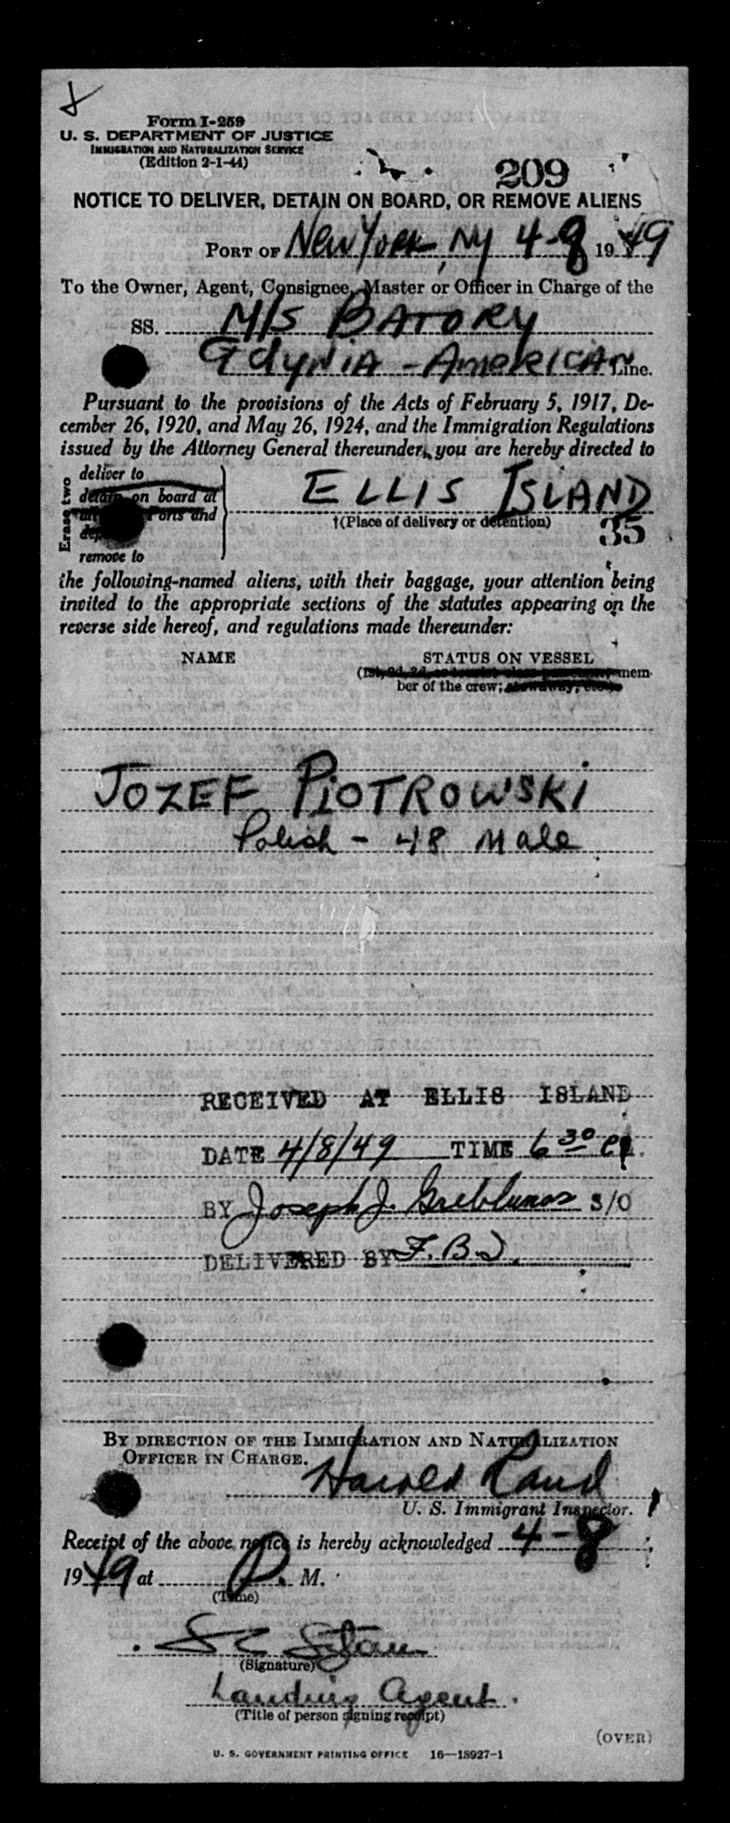 Form I-259
U. S. DEPARTMENT OF JUSTICE
IMMIGRATION AND NATURALIZATION SERVICE
(Edition 2-1-44)
209
NOTICE TO DELIVER, DETAIN ON BOARD, OR REMOVE ALIENS
PORT OF New York, NY 4-8 1949
To the Owner, Agent, Consignee, Master or Officer in Charge of the
SS. M/S BATORY
GdyNIA - AMERICAN Line.
Pursuant to the provisions of the Acts of February 5, 1917, De-
cember 26, 1920, and May 26, 1924, and the Immigration Regulations
issued by the Attorney General thereunder, you are hereby directed to
Erase two
deliver to
detain on board at
ports and
remove to
ELLIS ISLAND
†(Place of delivery or detention)
35
the following-named aliens, with their baggage, your attention being
invited to the appropriate sections of the statutes appearing on the
reverse side hereof, and regulations made thereunder:
NAME STATUS ON VESSEL
mem-
ber of the crew;
JOZEF PIOTROWSKI
Polish - 48 Male
RECEIVED AT ELLIS ISLAND
DATE 4/8/49 TIME 6 30 P.
BY Joseph J. S/O
DELIVERED BY F.B.I.
BY DIRECTION OF THE IMMIGRATION AND NATURALIZATION
OFFICER IN CHARGE.
Harold Rand
U. S. Immigrant Inspector.
Receipt of the above notice is hereby acknowledged 4-8
1949 at P. M.
(Time)
(Signature)
Landing Agent.
(Title of person signing receipt)
(OVER)
U. S. GOVERNMENT PRINTING OFFICE 16-18927-1